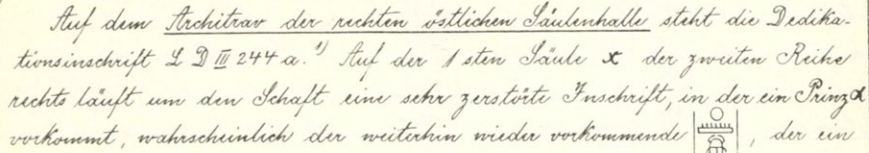 Auf dem Architrav der rechten östlichen Säulenhalle steht die Dedika-
tionsinschrift L D III 244 a.¹⁾ Auf der 1 sten Säule x der zweiten Reihe
rechts läuft um den Schaft eine sehr zerstörte Inschrift, in der ein Prinz α
vorkommt, wahrscheinlich der weiterhin wieder vorkommende , der ein